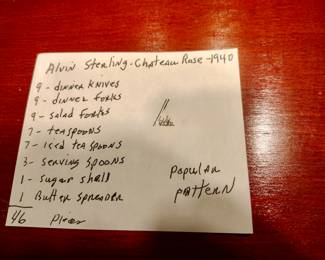 Alvin Sterling - Chateau Rose - 1940
9 - dinner knives
9 - dinner forks
9 - salad forks
7 - teaspoons
7 - iced teaspoons
3 - serving spoons
1 - sugar shell
1 Butter spreader
46 Pieces
popular
pattern